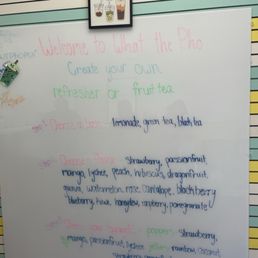 Welcome to What the Pho
Create your own
refresher or fruit tea
Choose a base: lemonade, green tea, black tea
Choose a flavor: strawberry, passionfruit,
mango, lychee, peach, hibiscus, dragonfruit,
guava, watermelon, rose, cantaloupe, blackberry
blueberry, kiwi, honeydew, raspberry, pomegranate
poppers: strawberry,
mango, passionfruit, lychee jellies: rainbow, coconut,